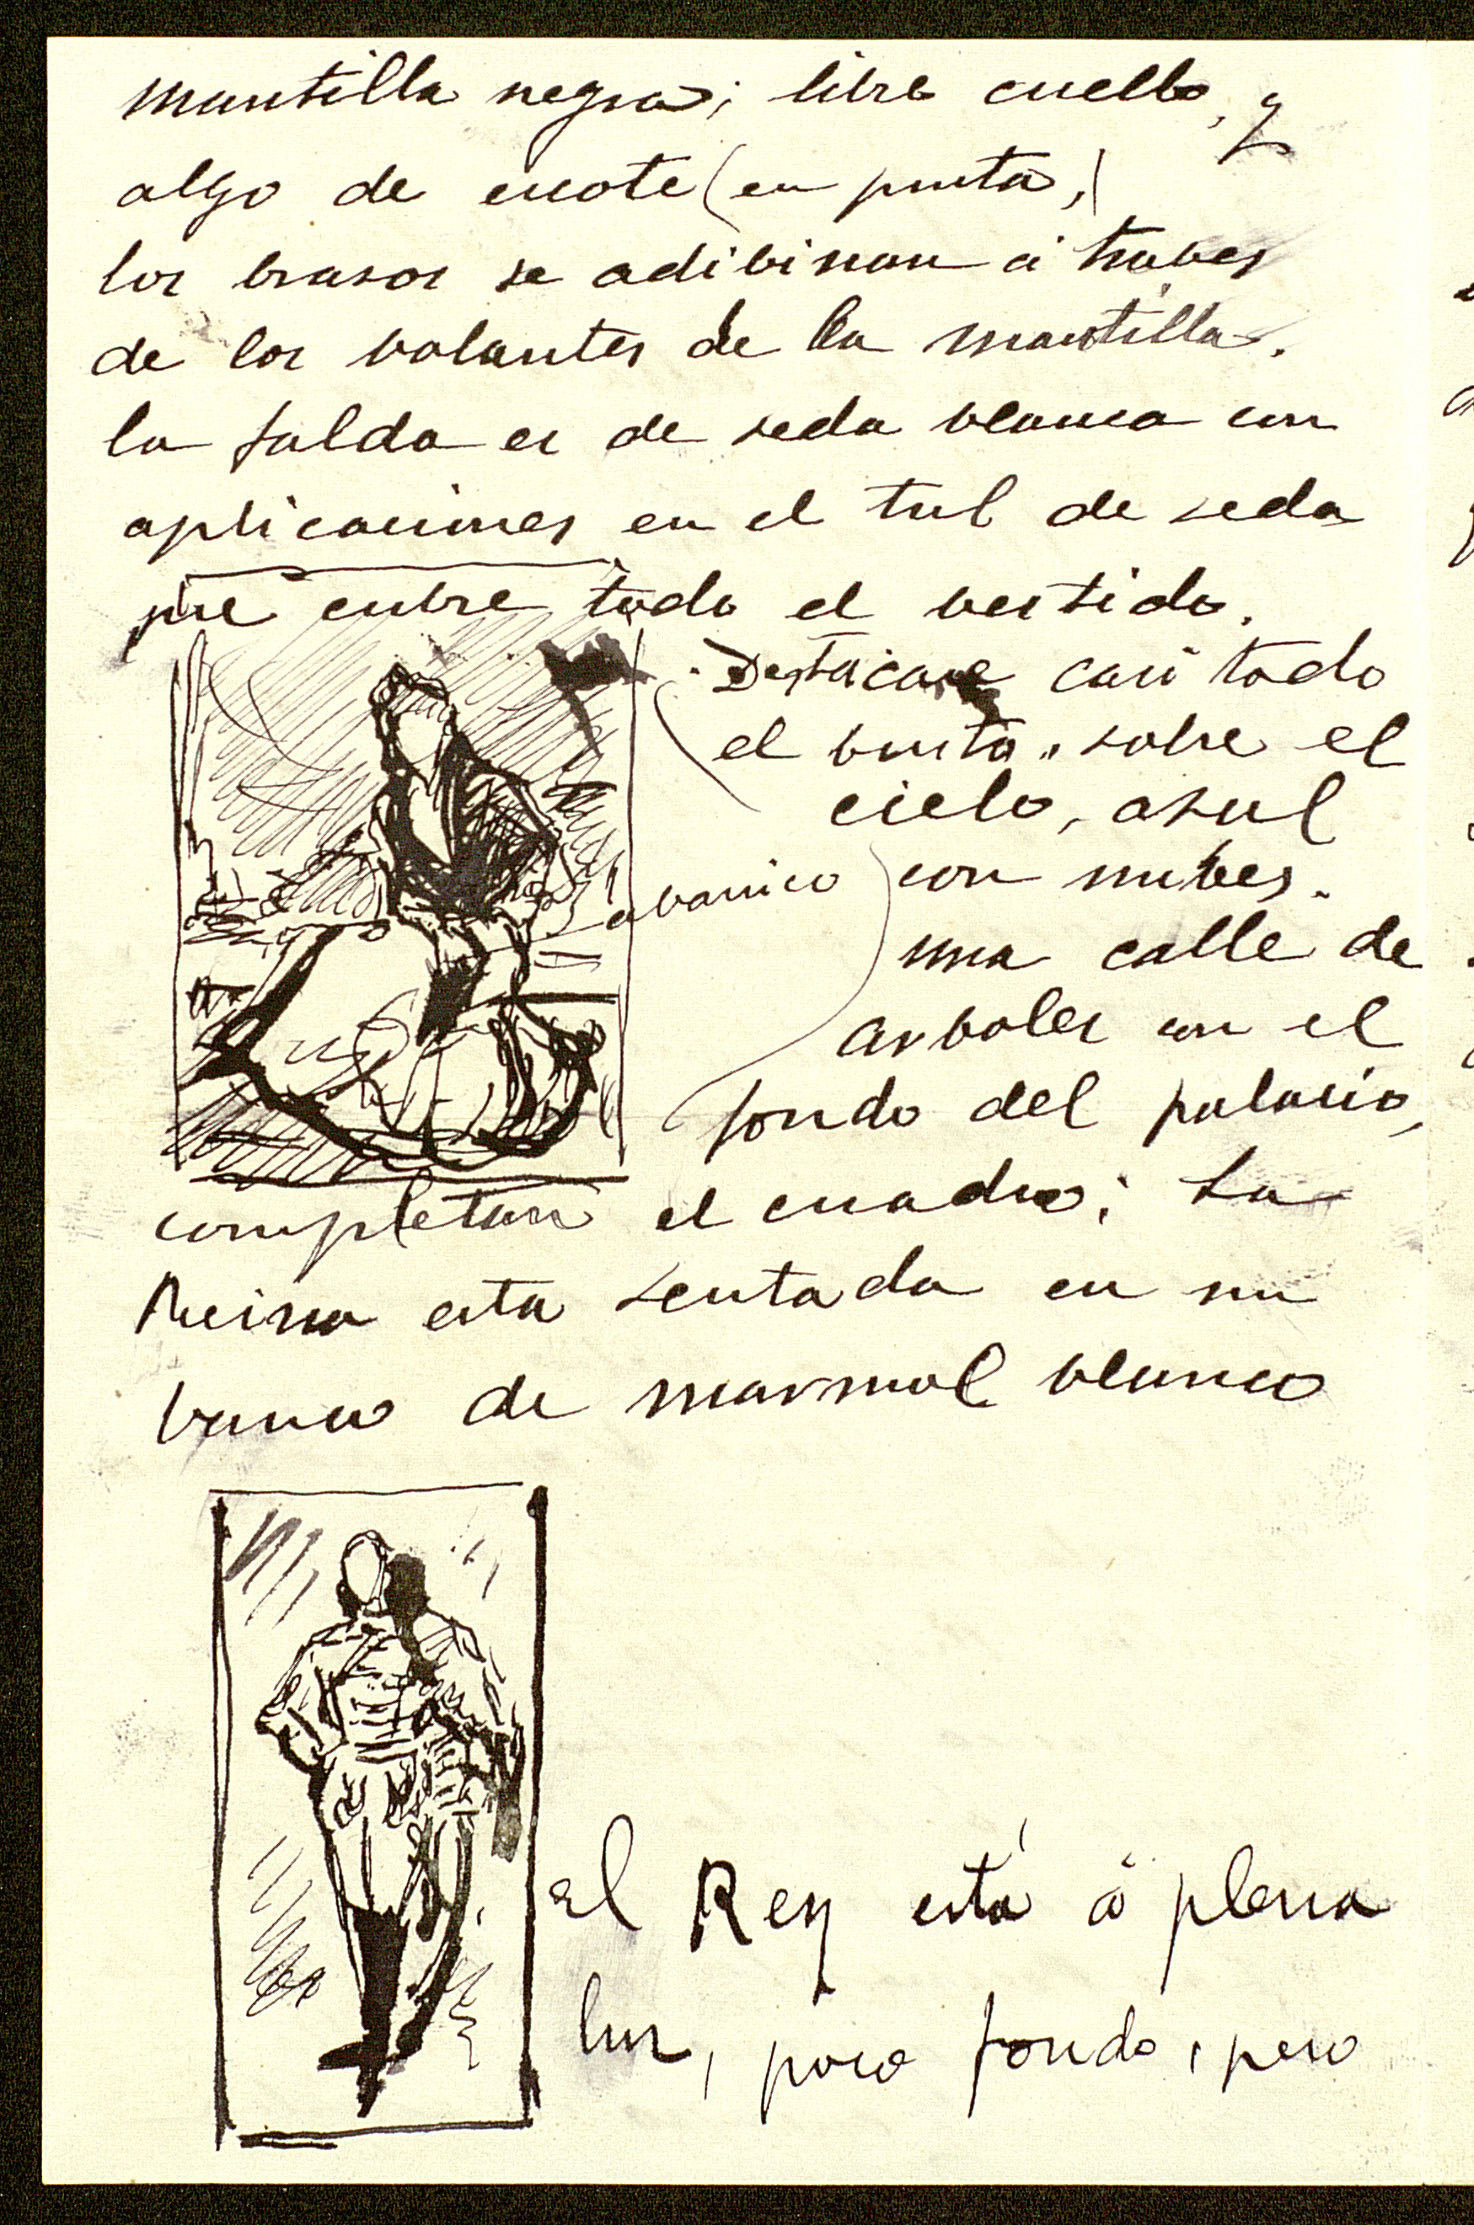 mantilla negra; libre cuello, y
algo de escote (en punta,)
los brasos se adibinan á trabes
de los volantes de la mantilla.
la falda es de seda blanca con
aplicaciones en el tul de seda
que cubre todo el vestido.
Destácase casi todo
el busto sobre el
cielo, asul
abanico
con nubes.
una calle de
arboles con el
fondo del palacio,
completan el cuadro; La
Reina esta sentada en un
banco de marmol blanco
el Rey está á plena
luz, poco fondo, pero